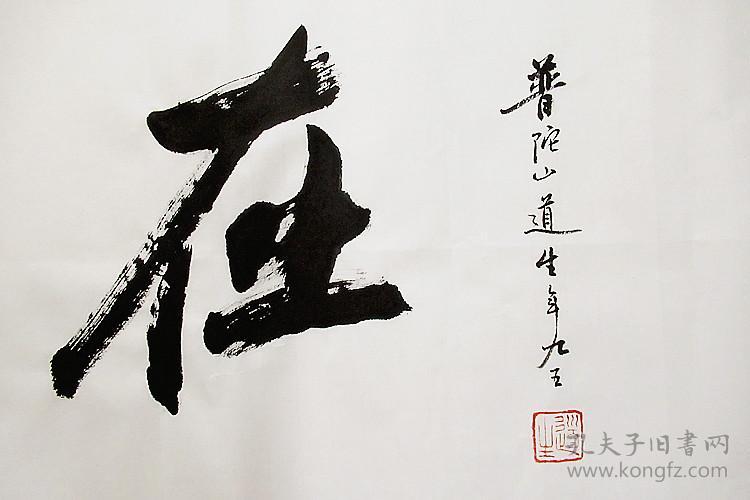 在
普陀山道生年九五
道生
孔夫子旧书网
www.kongfz.com